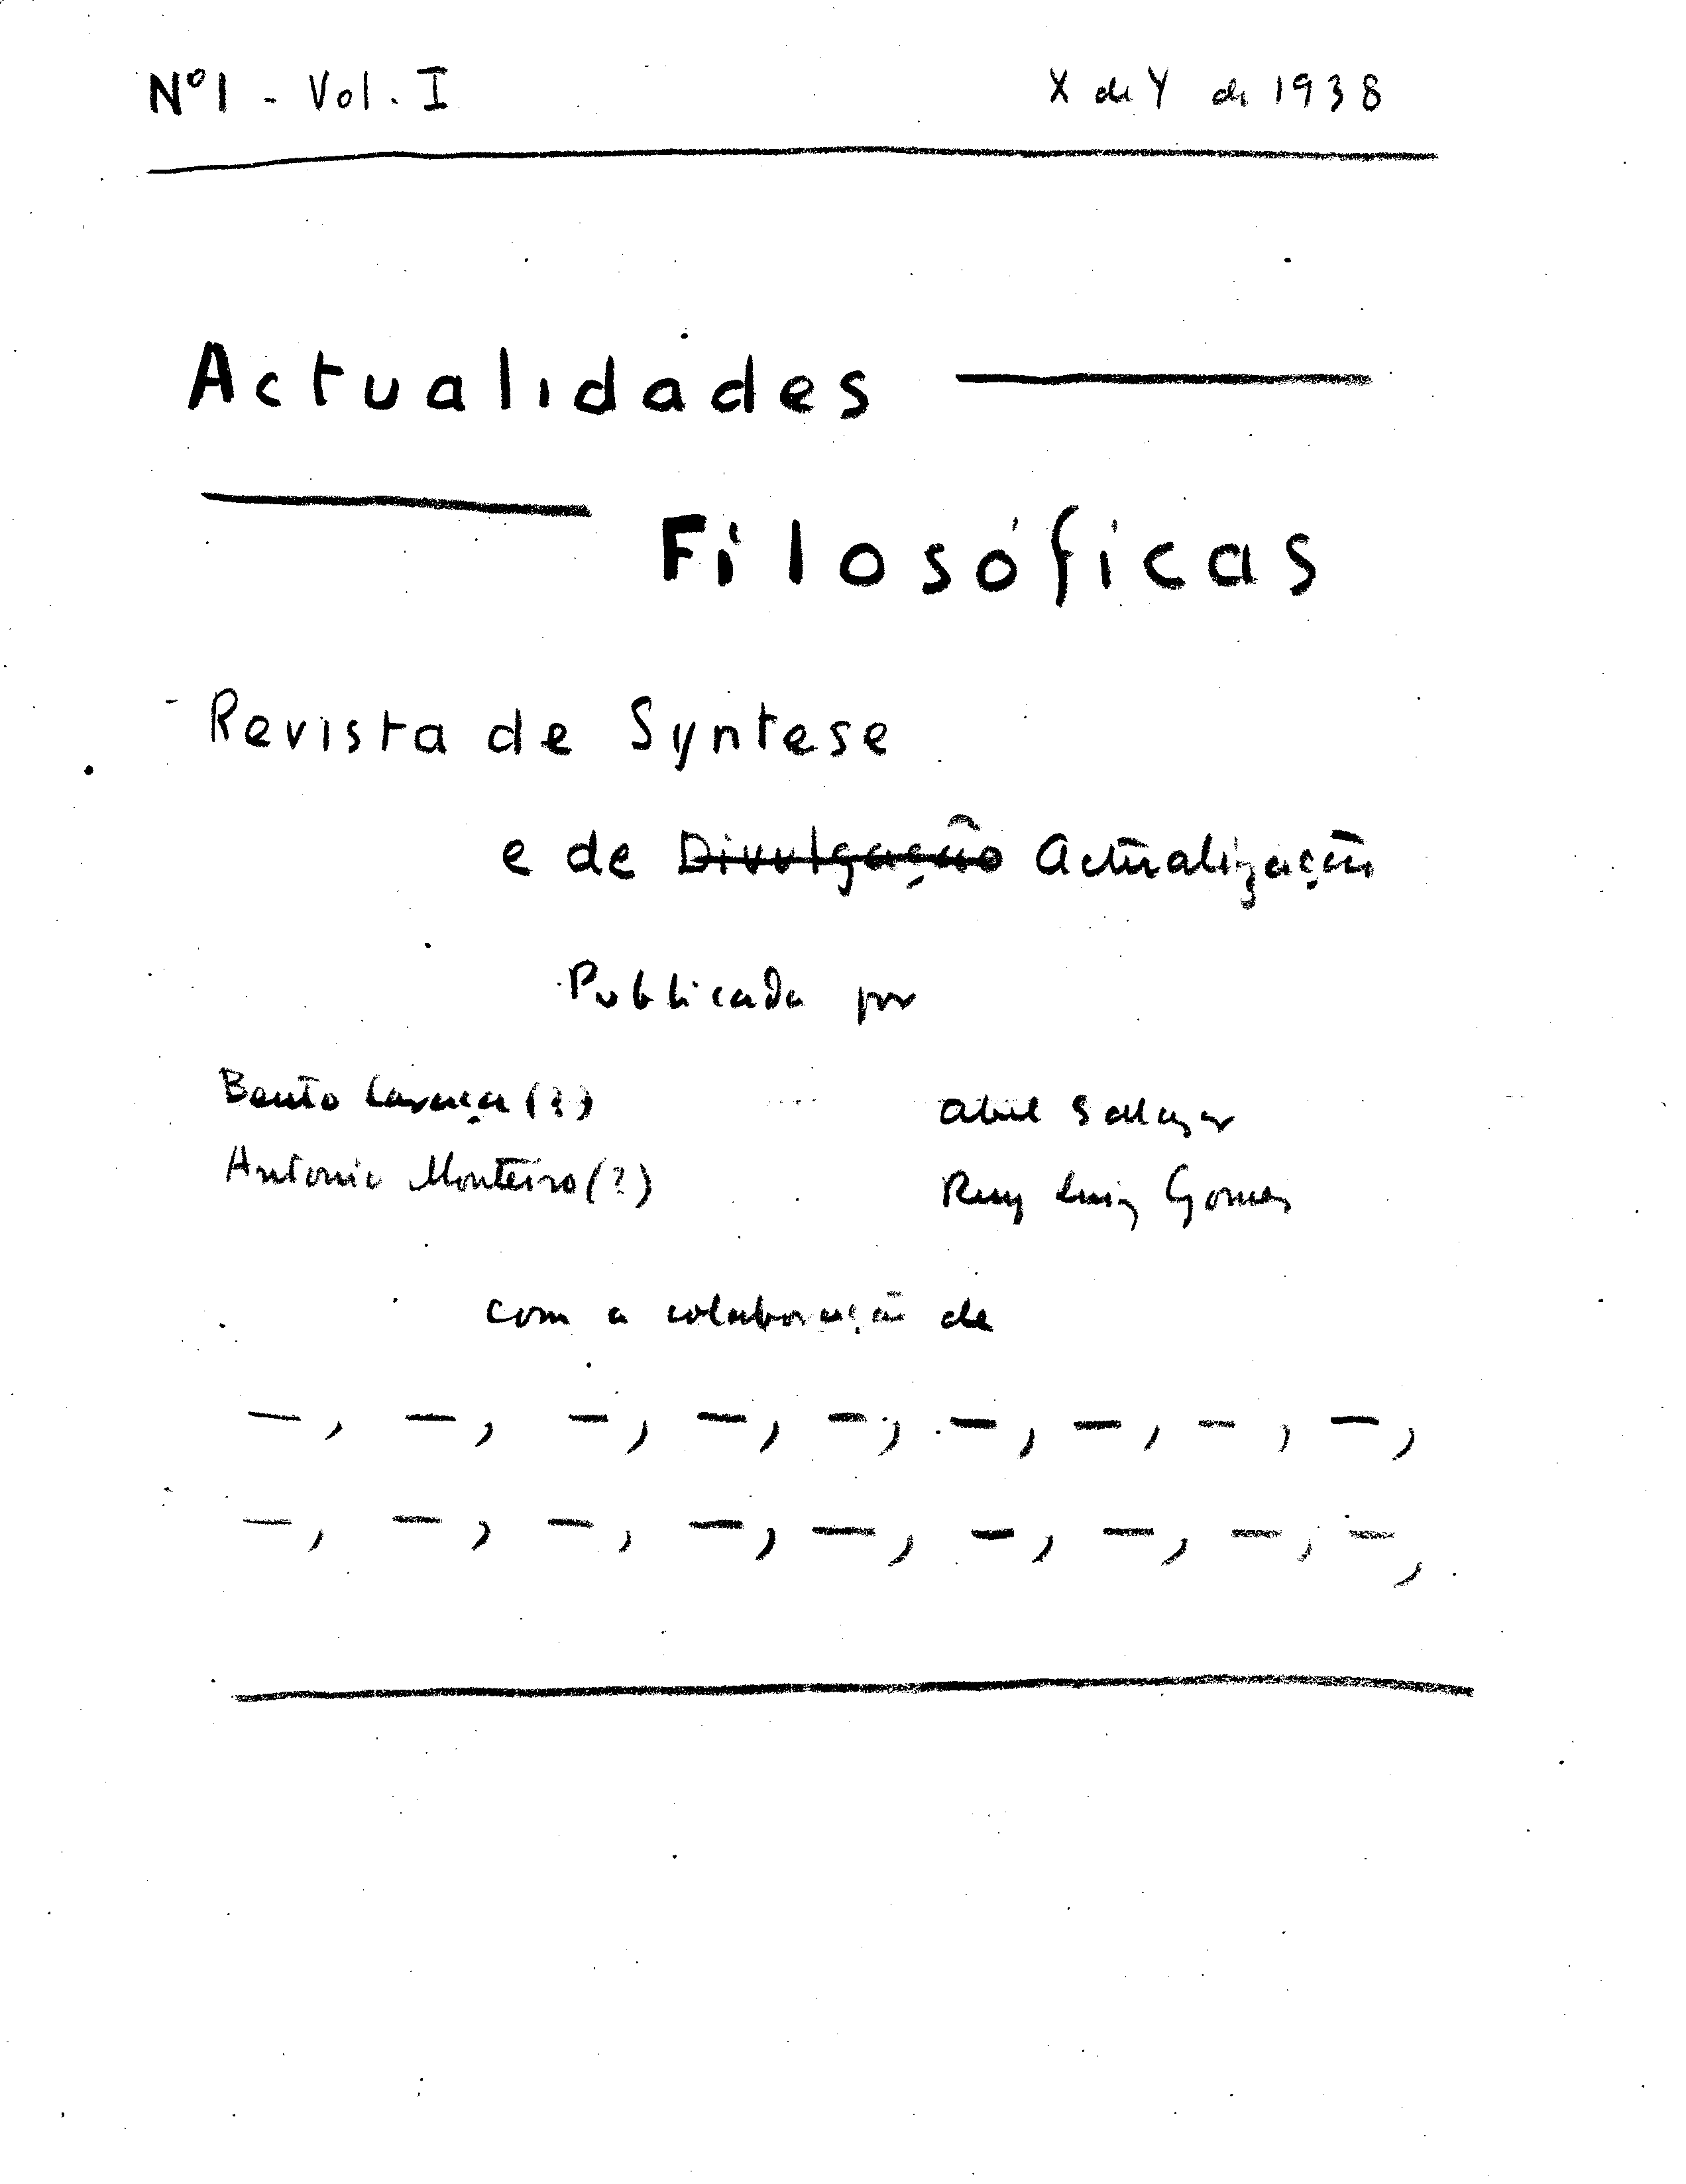 Nº1 - Vol. I X de Y de 1938
Actualidades
Filosóficas
- Revista de Syntese
e de Divulgação Actualização
Publicada por
Bento Caraça (?) Abel Sallazar
Antonio Monteiro (?) Ruy Luiz Gomes
com a colaboração de
—, —, —, —, —, —, —, —, —,
—, —, —, —, —, —, —, —, —,